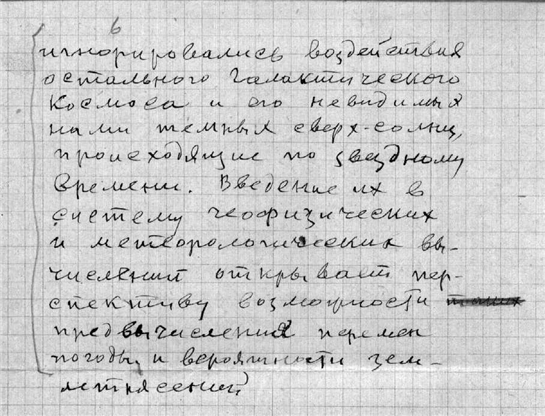 6
игнорировались воздействия
остального Галактического
Космоса и его невидимых
нами темных сверх-солнц,
происходящие по звездному
времени. Введение их в
систему геофизических
и метеорологических вы-
числений открывает пер-
спективу возможности
предвычисления перемен
погоды, и вероятности зем-
летрясений?